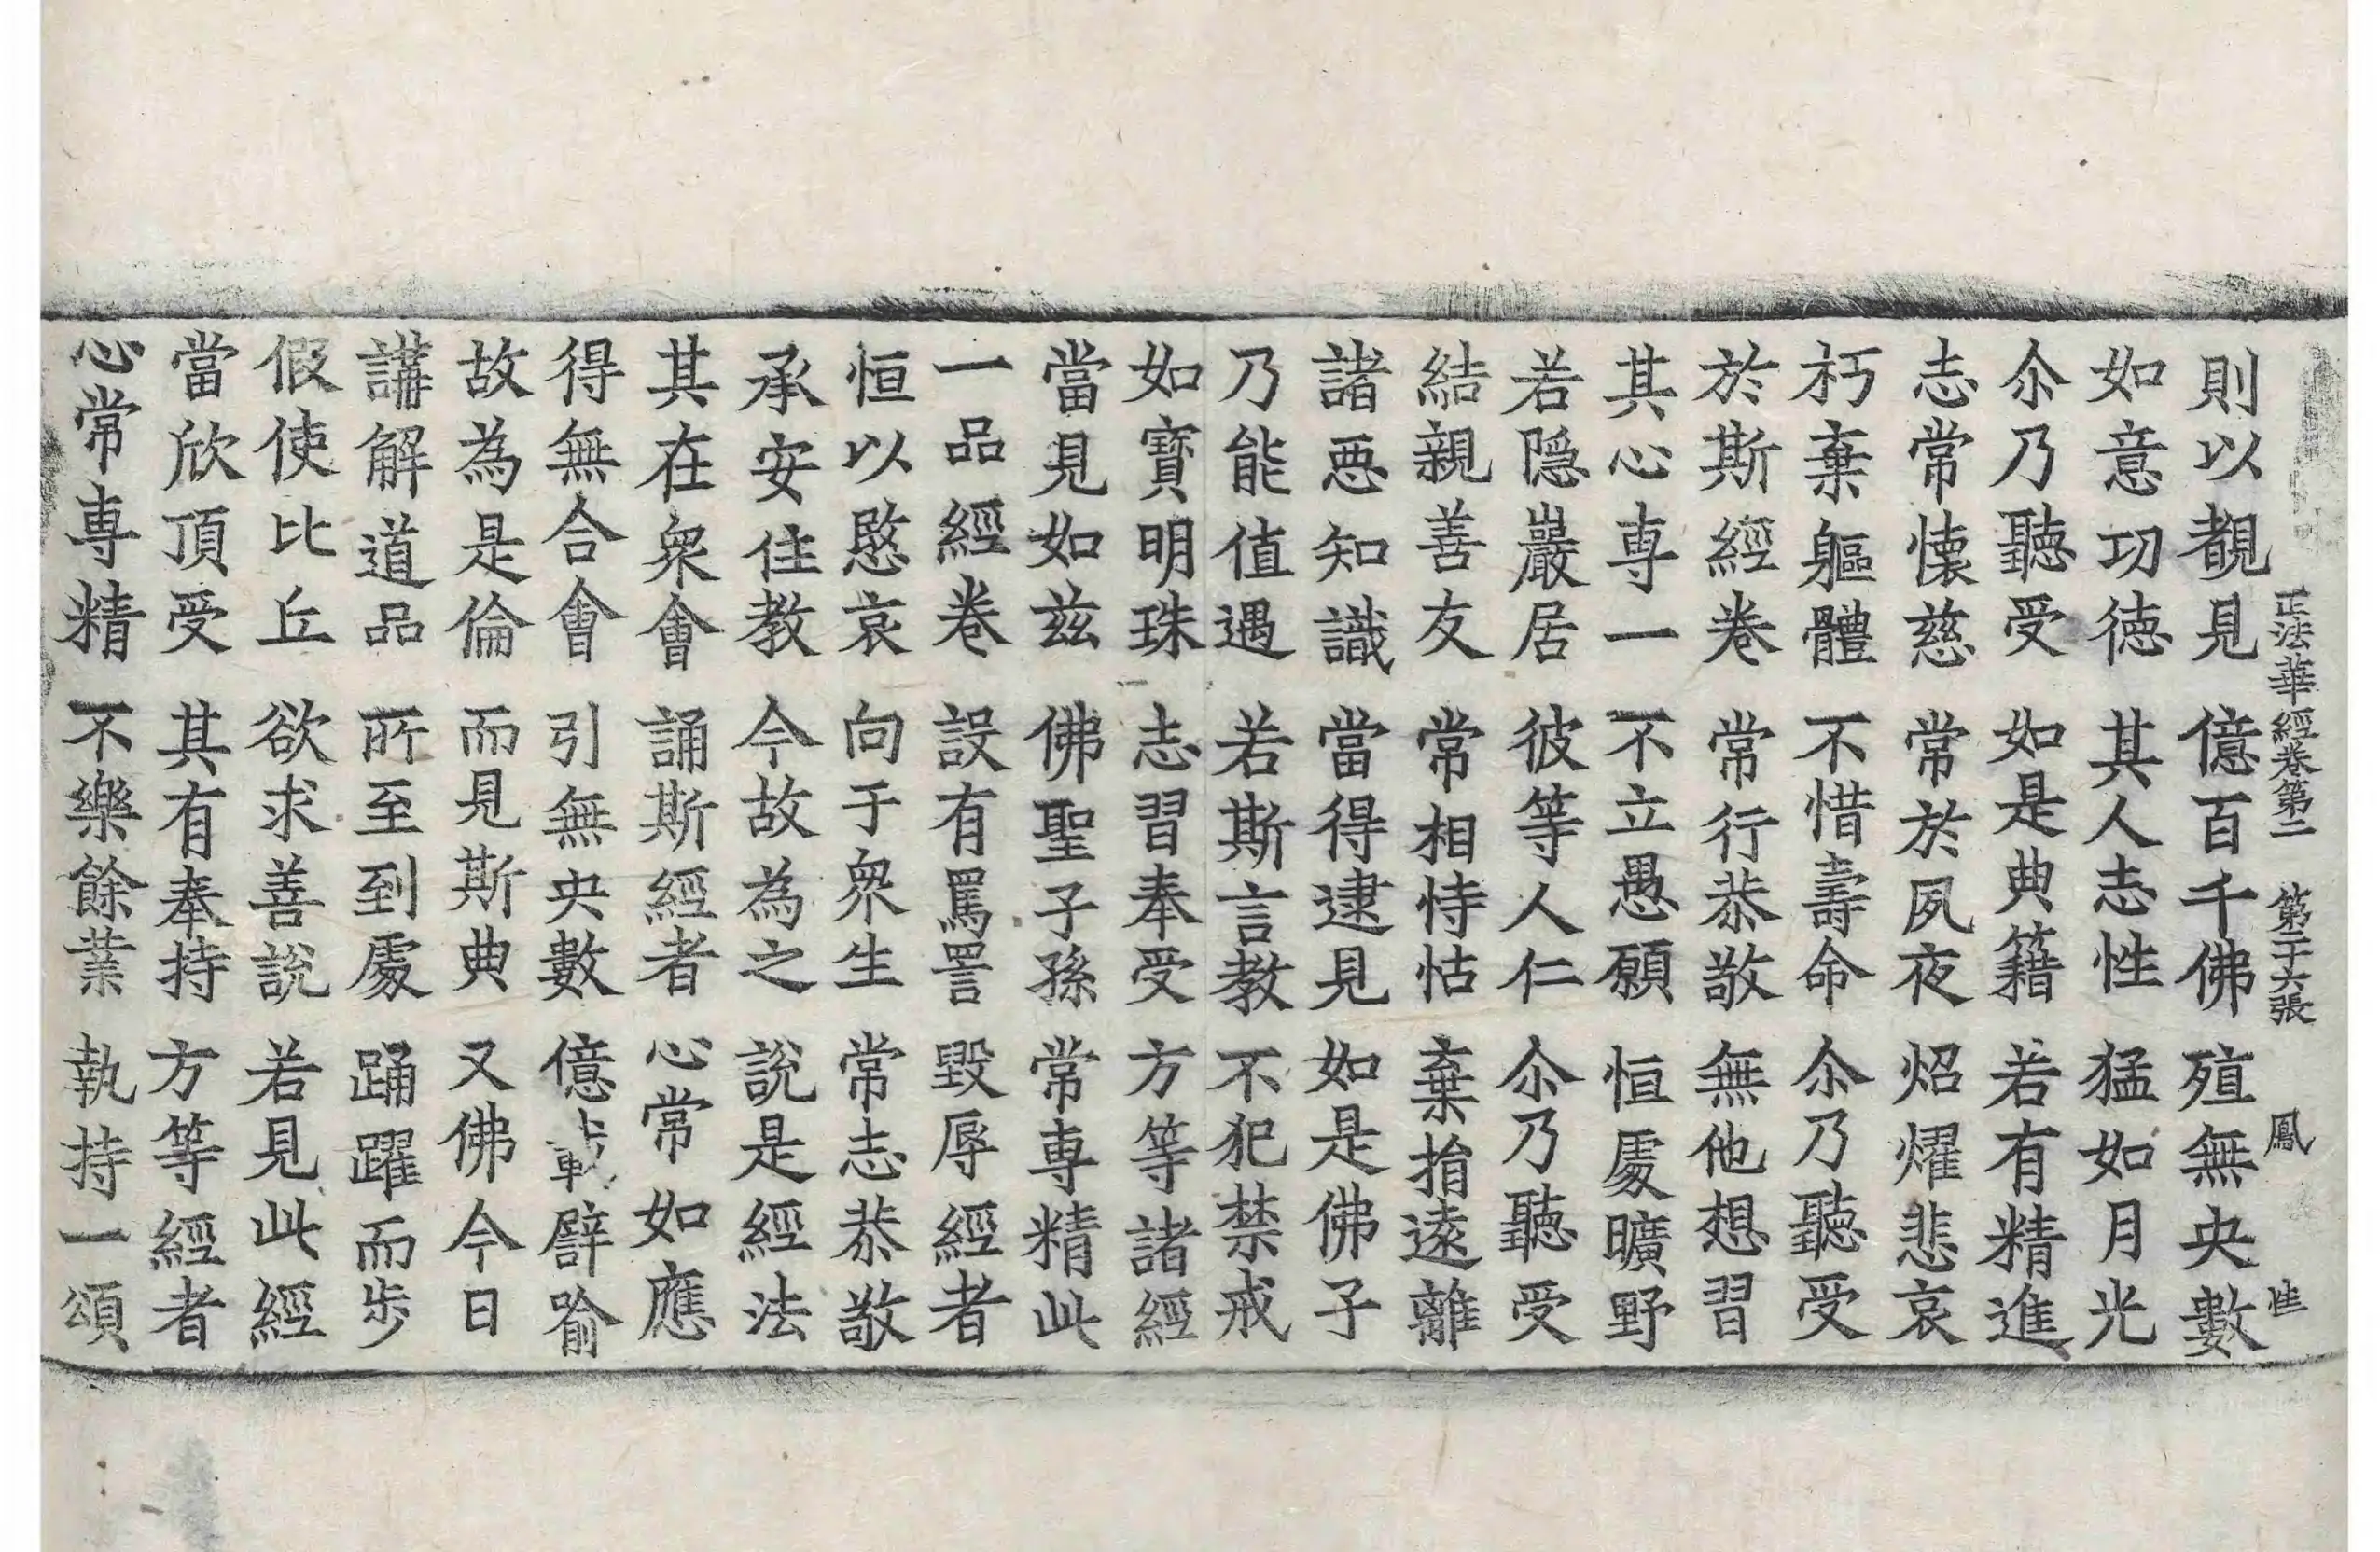 正法華經卷第二 第二十六張 鳳
則以覩見 億百千佛 殖無央數
如意功德 其人志性 猛如月光
尒乃聽受 如是典籍 若有精進
志常懷慈 常於夙夜 炤燿悲哀
朽棄軀體 不惜壽命 尒乃聽受
於斯經卷 常行恭敬 無他想習
其心専一 不立愚願 恒處曠野
若隠巖居 彼等人仁 尒乃聽受
結親善友 常相恃怙 棄捐遠離
諸惡知識 當得逮見 如是佛子
乃能值遇 若斯言教 不犯禁戒
如寶明珠 志習奉受 方等諸經
當見如茲 佛聖子孫 常専精此
一品經卷 設有罵詈 毀辱經者
恒以愍哀 向于衆生 常志恭敬
承安住教 今故為之 說是經法
其在衆會 誦斯經者 心常如應
得無合會 引無央數 億載譬喻
故為是倫 而見斯典 又佛今日
講解道品 所至到處 踊躍而步
假使比丘 欲求善說 若見此經
當欣頂受 其有奉持 方等經者
心常専精 不樂餘業 執持一頌